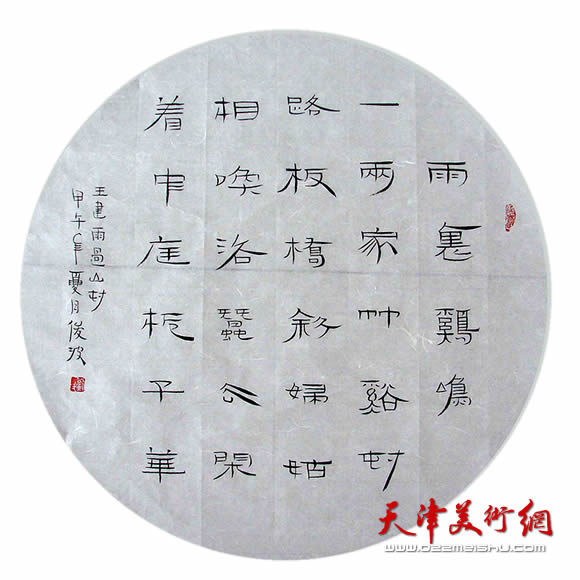 雨裏鷄鳴
一兩家竹谿村
路板橋斜婦姑
相喚浴蠶去閑
着中庭栀子華
王建雨過山村
甲午年夏月俊
天津美術網
www.022meishu.com